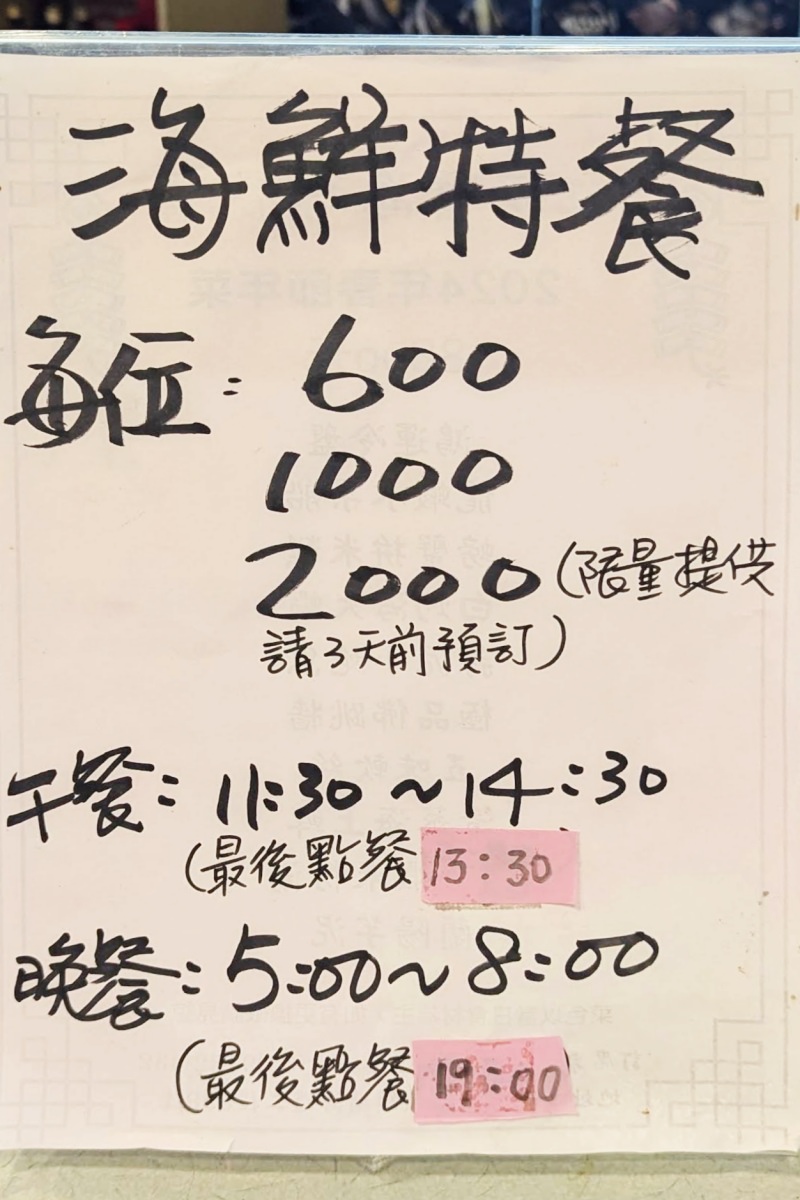 海鮮特餐
每位：600
1000
2000(限量提供
請3天前預訂)
午餐：11:30～14:30
(最後點餐13:30
晚餐：5:00～8:00
(最後點餐19:00